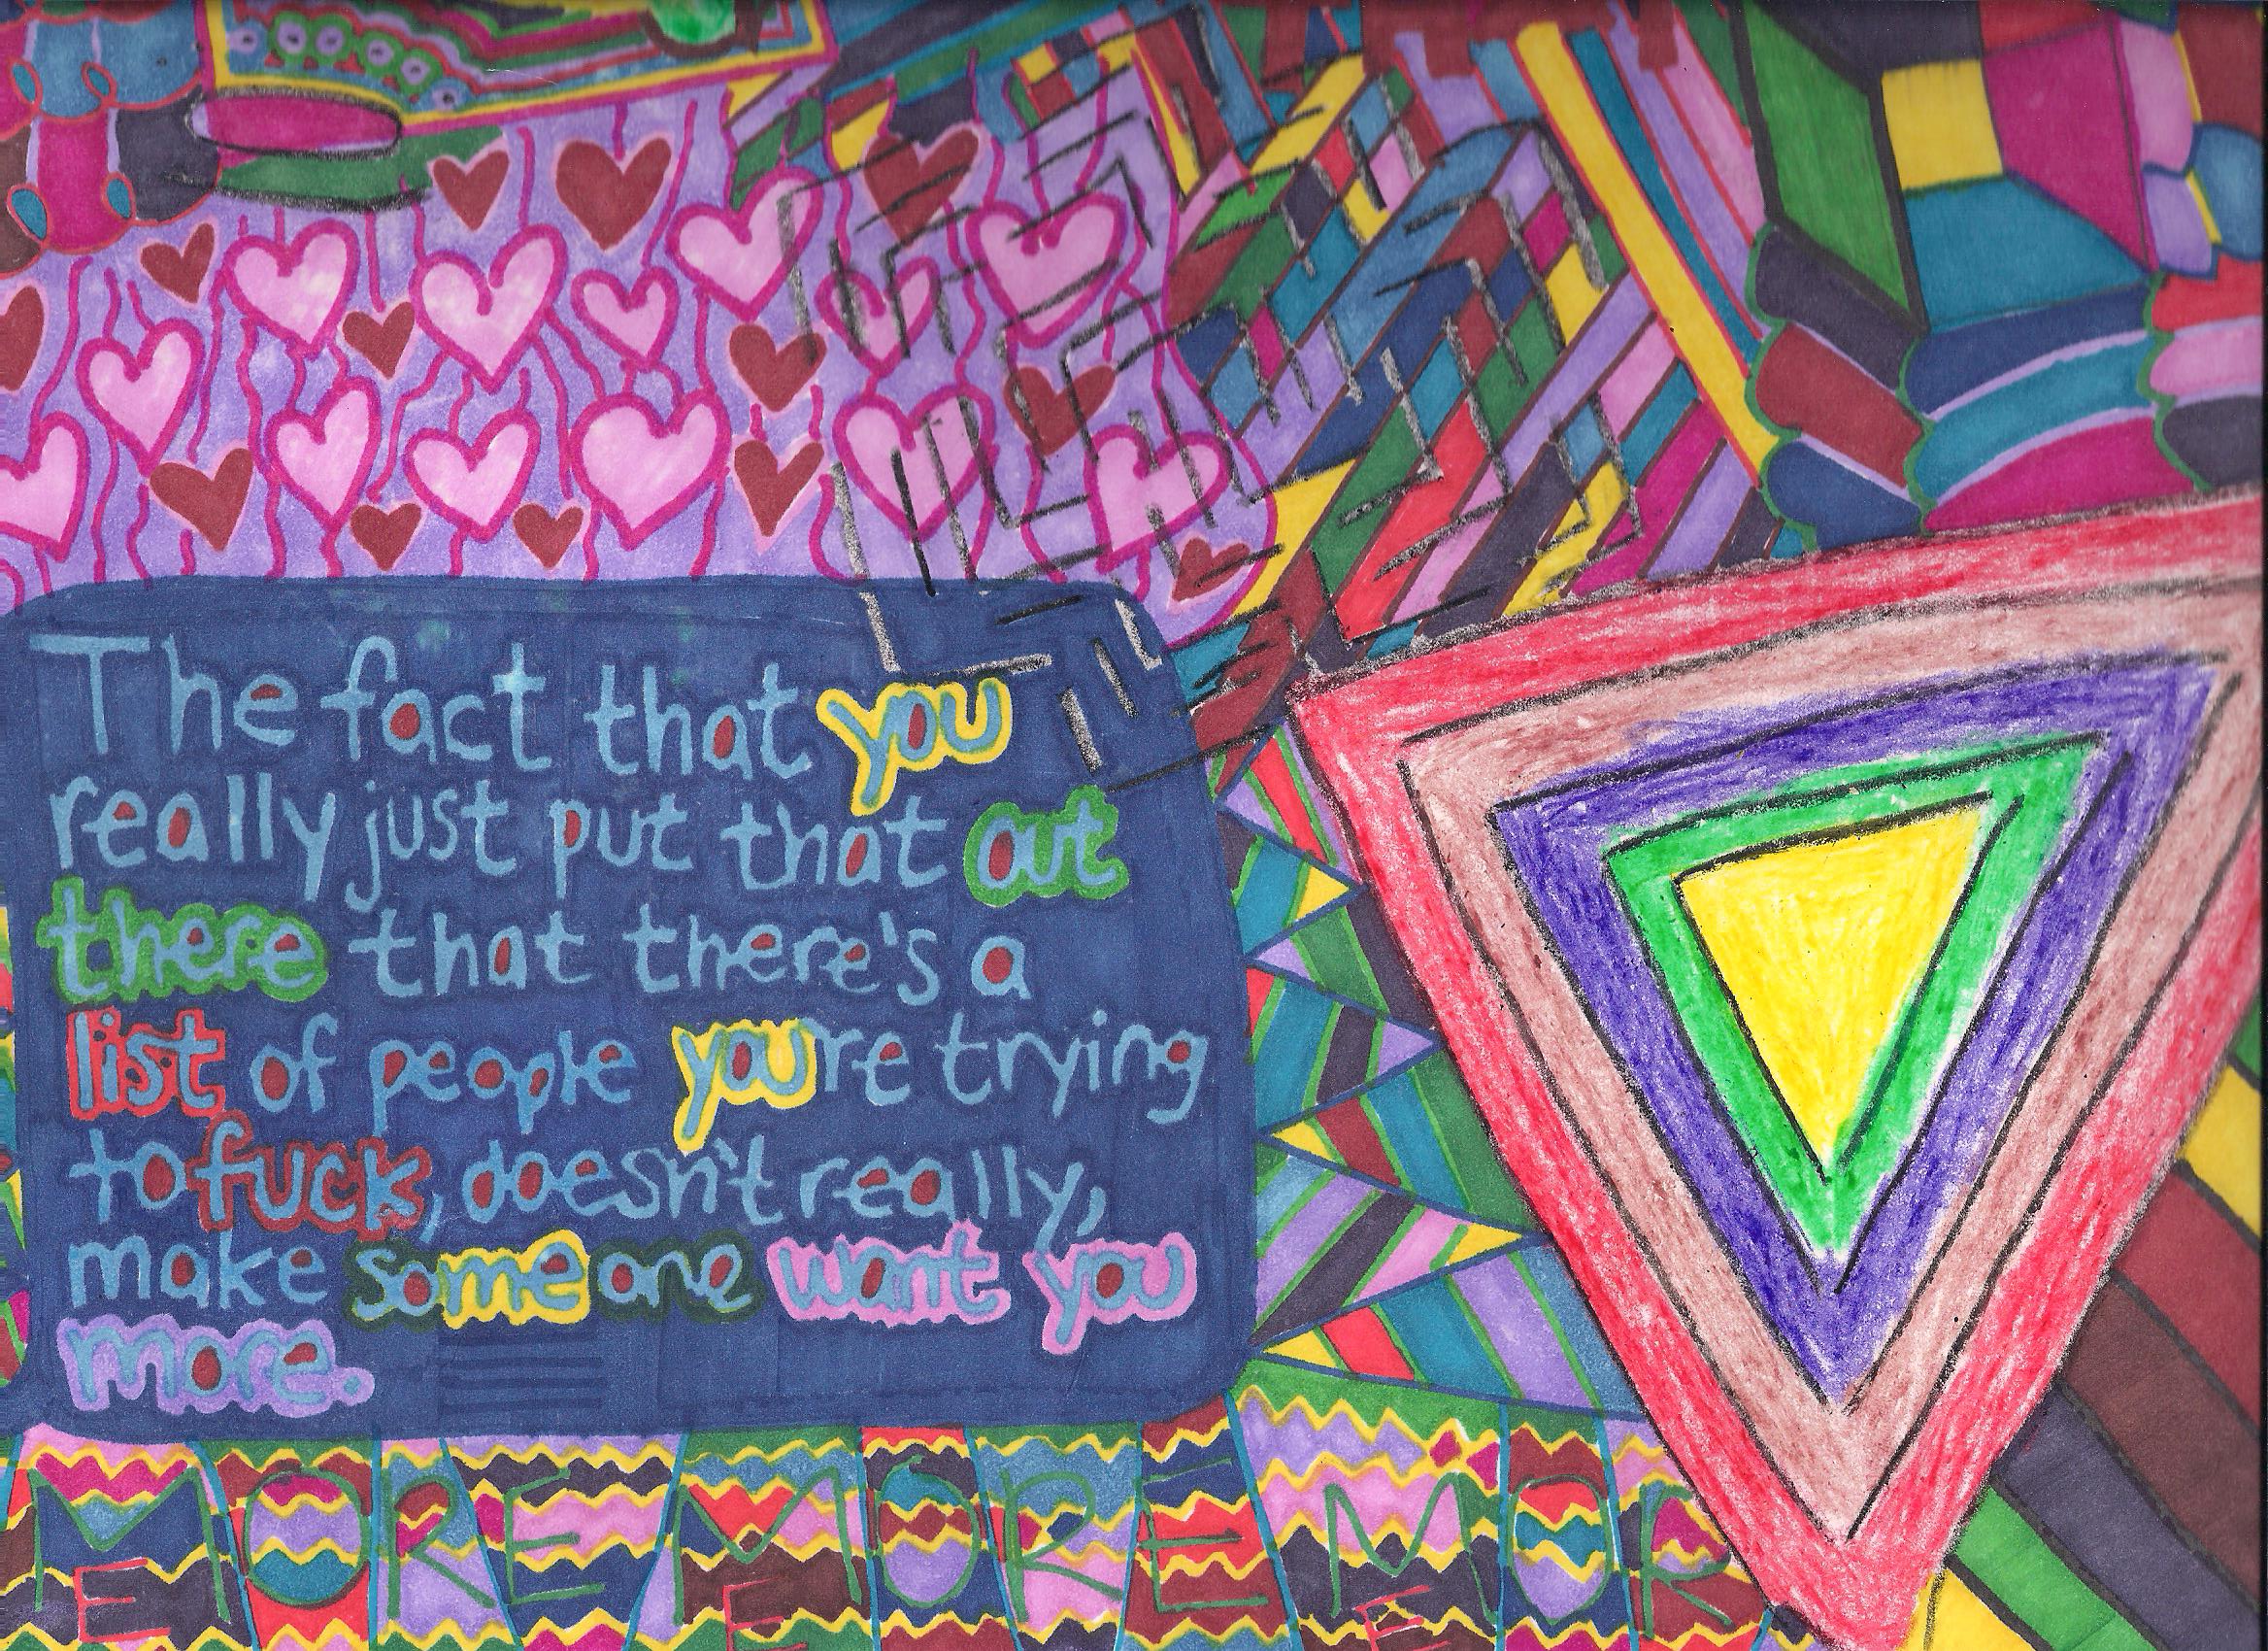 The fact that you
really just put that out
there that there's a
list of people you're trying
to fuck, doesn't really,
make someone want you
more.
MORE MORE MOR
E E E